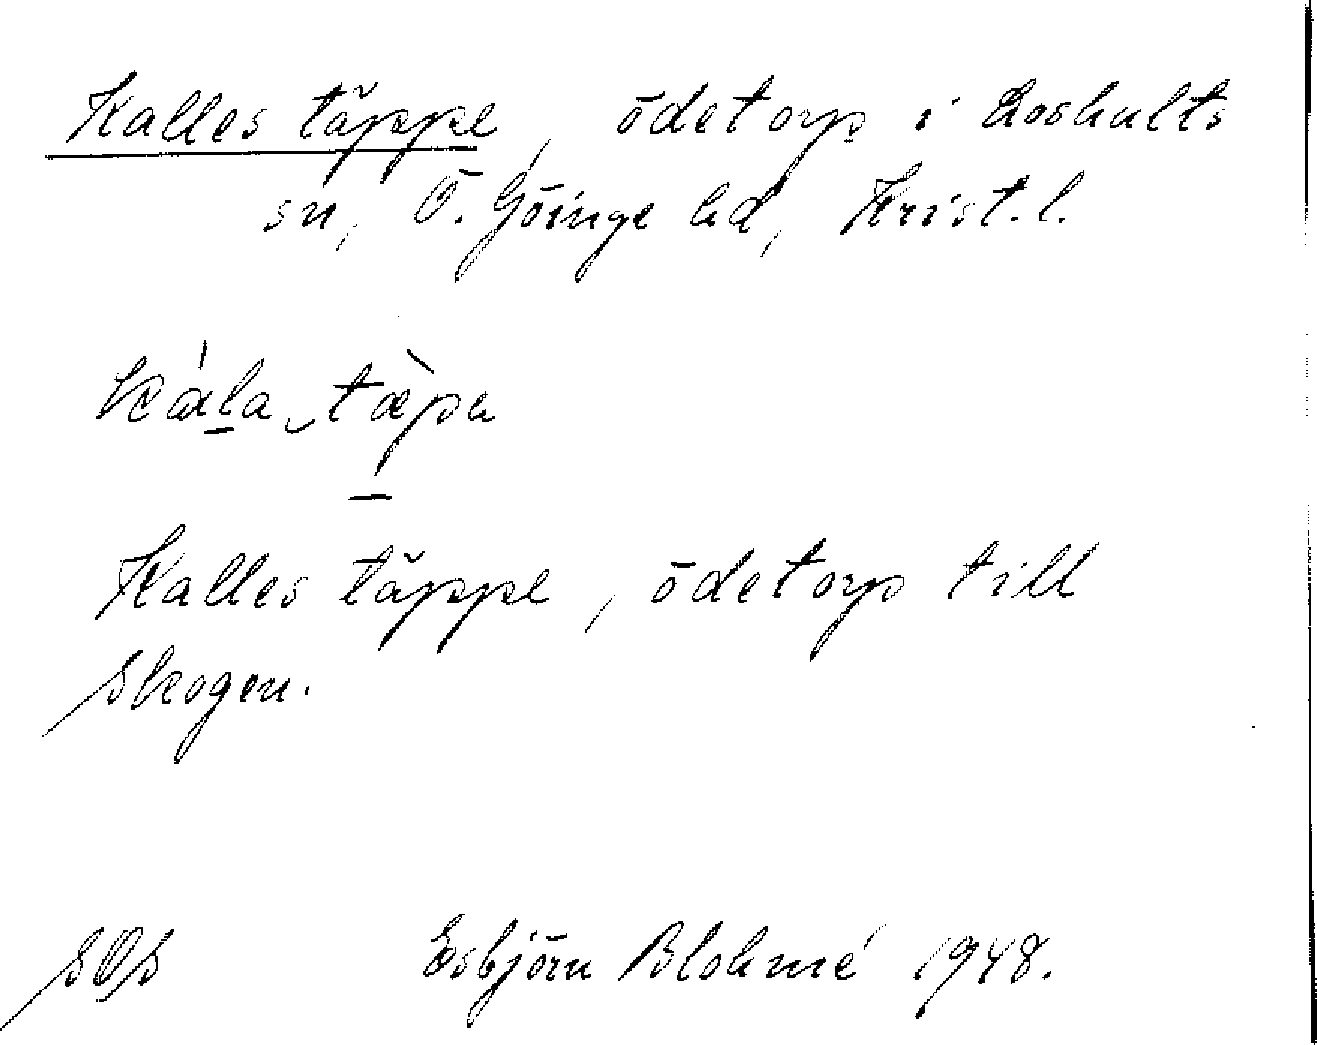 Kalles täppe, ödetorp i Loshults
sn, Ö. Göinge hd, Krist.l.
kála tæ̀pa
Kalles täppe, ödetorp till
Skogen.
SOS Esbjörn Blohmé 1948.